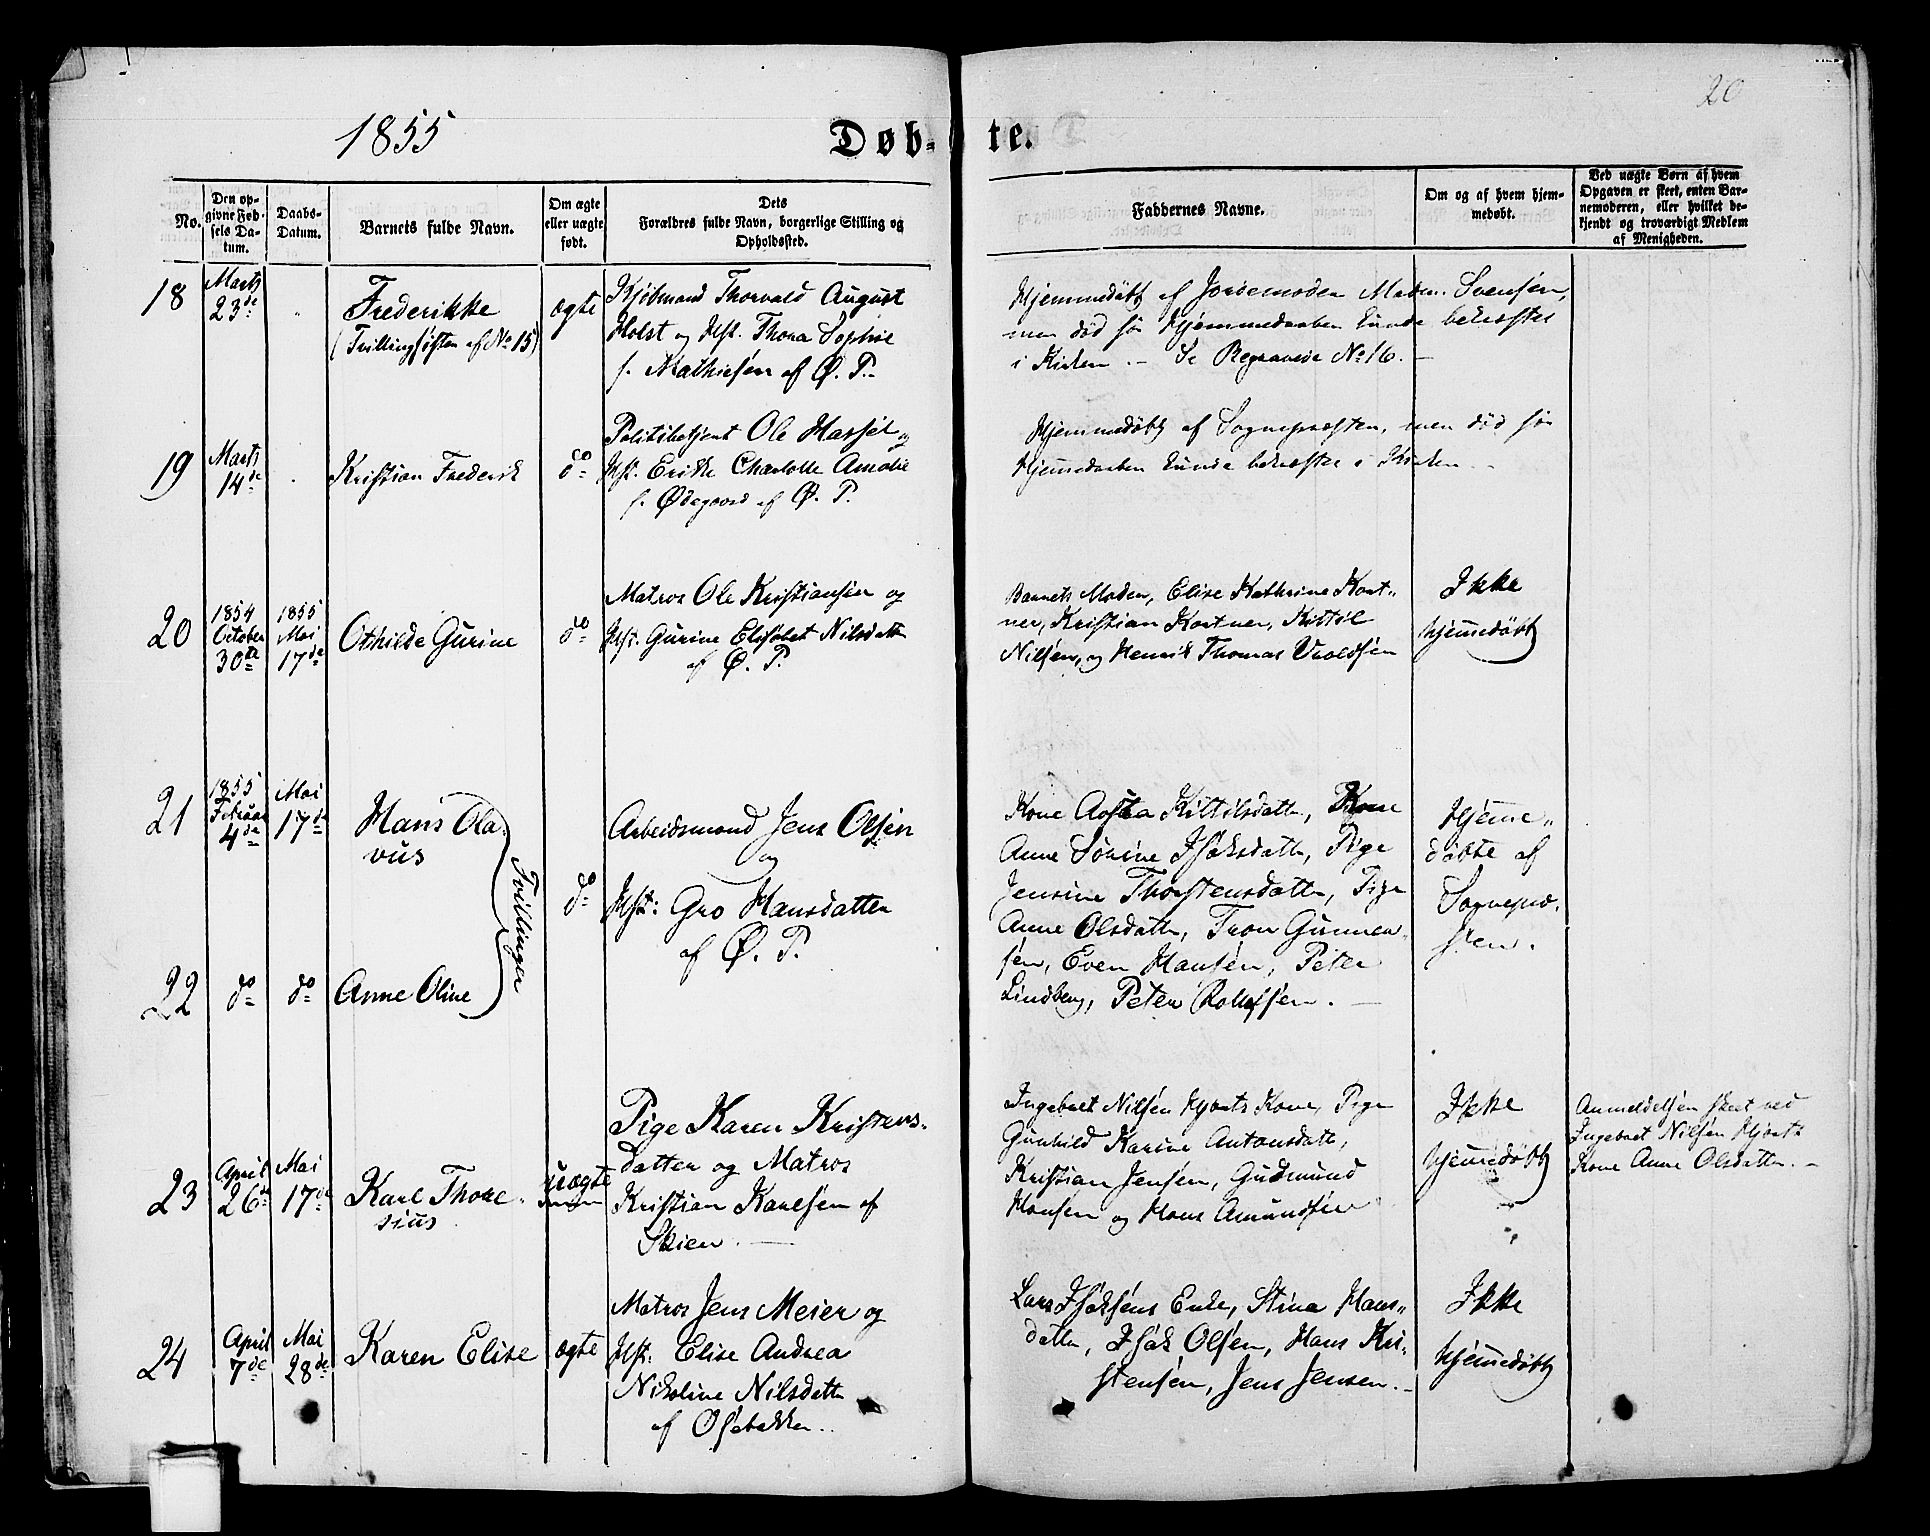 20
1855
Døb- te.
No.
Den op-
givne Fød-
sels Da-
tum.
Daabs-
Datum.
Barnets fulde Navn.
Om ægte
eller uægte
født.
Dets
Forældres fulde Navn, borgerlige Stilling og
Opholdssted.
Faddernes Navne.
Om og af hvem hjem-
medøbt.
Ved uægte Børn af hvem
Opgaven er skeet, enten Bar-
nemoderen, eller hvilket be-
kjendt og troværdigt Medlem
af Menigheden.
18
Marts
23de
Frederikke
(Tvillingsøsten af No 15)
ægte
Kjøbmand Thorvald August
Holst og Hst. Thora Sophie
f. Mathiesen af Ø. P.
Hjemmedøbt af Jordemoder Madm. Svensen,
men død før Hjemmedaaben kunde bekræftes
i Kirken. - Se Begravede No 16. -
19
Marts
14de
Kristian Frederik
do
Politibetjent Ole Hassel og
Hst. Erikke Charlotte Amalie
f. Ødegaard af Ø. P.
Hjemmedøbt af Sognepræsten, men død før
Hjemmedaaben kunde bekræftes i Kirken.
20
1854
October
30te
1855
Mai
17de
Othilde Gurine
do
Matros Ole Kristiansen og
Hst. Gurine Elisabet Nilsdatt
af Ø. P.
Barnets Moder, Elise Kathrine Kort-
ner, Kristian Kortner, Kittil
Nilsen, og Henrik Thomas Uvoldsen
Ikke
hjemmedøbt
21
1855
Februar
4de
Mai
17de
Hans Ola-
vus
Tvillinger
do
Arbeidsmand Jens Olsen
og
Hst: Gro Hansdatter
af Ø. P.
Kone Aasta Kittilsdatt, Kone
Anne Sørine Isaksdatt, Pige
Jensine Thorstensdatt, Pige
Anne Olsdatt, Tron Gunner-
sen, Even Hansen, Peter
Lindberg, Peter Rolufsen. -
Hjemme-
døbte af
Sognepræ-
sten.
22
do
do
Anne Oline
23
April
26de
Mai
17de
Karl Thore-
sius
uægte
Pige Karen Kristens-
datter og Matros
Kristian Karlsen af
Skien. -
Ingebret Nilsen Hjorts Kone, Pige
Gunhild Karine Antonsdatt,
Kristian Jensen, Gudmund
Hansen og Hans Amundsen
Ikke
hjemmedøbt
Anmeldelsen skeet ved
Ingebret Nilsen Hjorts
Kone Anne Olsdatter. -
24
April
7de
Mai
28de
Karen Elise
ægte
Matros Jens Meier og
Hst: Elise Andrea
Nikoline Nilsdatt
af Osebakken.
Lars Isaksens Enke, Stina Hans-
datt, Isak Olsen, Hans Kri-
stensen, Jens Jensen. -
Ikke
hjemmedøbt